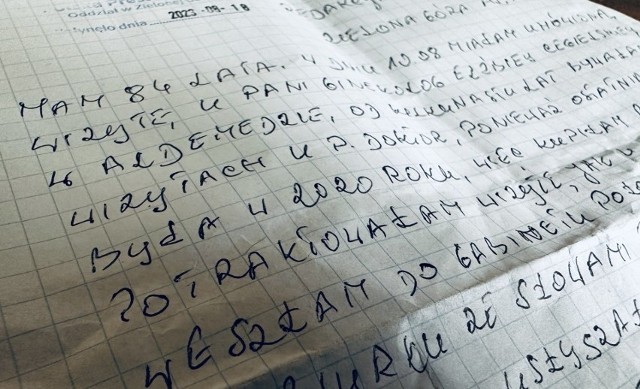 Oddział w Zielonej
wpłynęło dnia 2023-08-18
REDAKC
ZIELONA GÓRA
MAM 84 LATA. W DNIU 10.08 MIAŁAM UMÓWIONĄ
WIZYTĘ, U PANI GINEKOLOG ELŻBIETY
W ALDEMEDZIE, OD KILKUNASTU LAT BYWAŁAM
WIZYTACH U P. DOKTOR, PONIEWAŻ OSTATNIA
BYŁA W 2020 ROKU, WIĘC KUPIŁAM
POTRAKTOWAŁAM WIZYTĘ, JAK
WESZŁAM DO GABINETU
ZE SŁOWAMI
USŁYSZAŁ